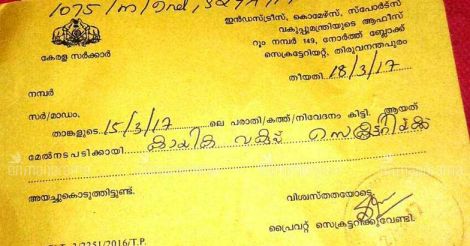 1075/
ഇൻഡസ്ട്രീസ്, കൊമേഴ്സ്, സ്പോർട്സ്
വകുപ്പുമന്ത്രിയുടെ ആഫീസ്
റൂം നമ്പർ 149, നോർത്ത് ബ്ലോക്ക്
സെക്രട്ടേറിയറ്റ്, തിരുവനന്തപുരം
കേരള സർക്കാർ
തീയതി 18/3/17
നമ്പർ
സർ/മാഡം,
താങ്കളുടെ 15/3/17 ലെ പരാതി/കത്ത്/നിവേദനം കിട്ടി. ആയത്
മേൽനടപടിക്കായി കായിക വകുപ്പ് സെക്രട്ടറിയ്ക്ക്
അയച്ചുകൊടുത്തിട്ടുണ്ട്.
വിശ്വസ്തതയോടെ,
പ്രൈവറ്റ് സെക്രട്ടറിക്കുവേണ്ടി.
/2251/2016/T.P.